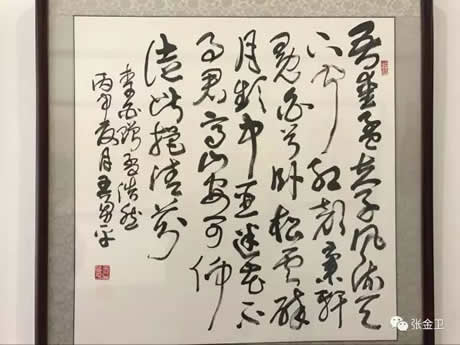 吾爱孟夫子风流天
下闻红颜棄轩
冕白首卧松云醉
月频中圣迷花不
事君高山安可仰
徒此揖清芬
李白赠孟浩然
丙申夏月
张金卫